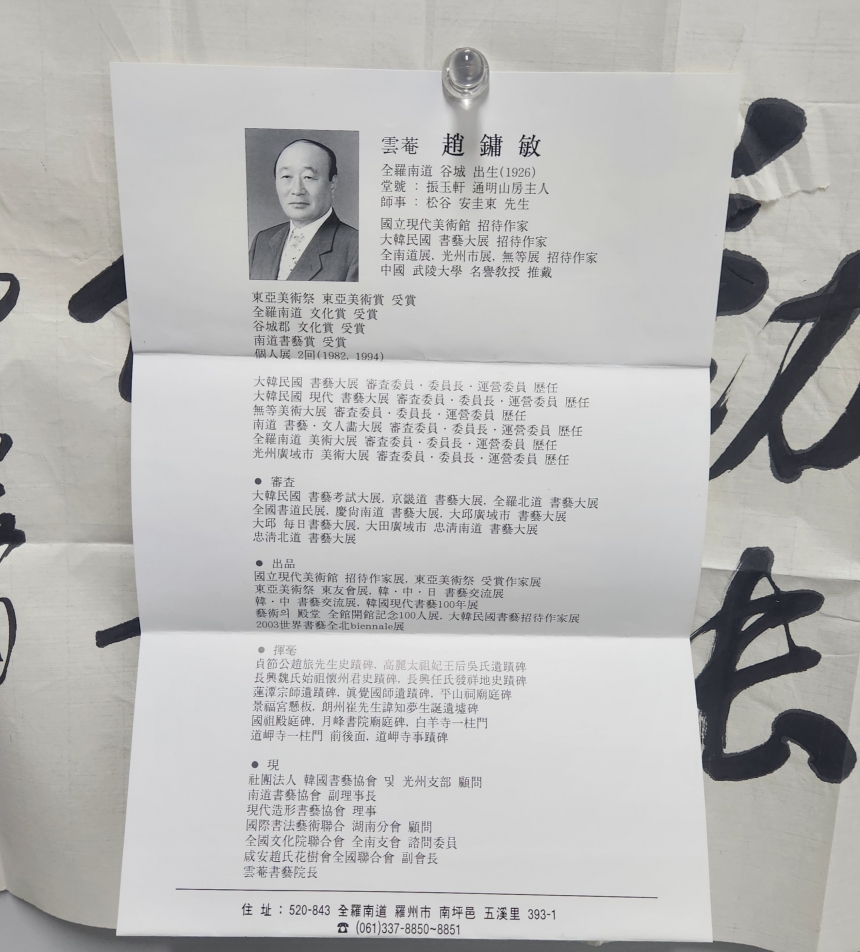 雲菴 趙鏞敏
全羅南道 谷城 出生(1926)
堂號 : 振玉軒 通明山房主人
師事 : 松谷 安圭東 先生
國立現代美術館 招待作家
大韓民國 書藝大展 招待作家
全南道展, 光州市展, 無等展 招待作家
中國 武陵大學 名譽敎授 推戴
東亞美術祭 東亞美術賞 受賞
全羅南道 文化賞 受賞
谷城郡 文化賞 受賞
南道書藝賞 受賞
個人展 2回(1982, 1994)
大韓民國 書藝大展 審査委員·委員長·運營委員 歷任
大韓民國 現代 書藝大展 審査委員·委員長·運營委員 歷任
無等美術大展 審査委員·委員長·運營委員 歷任
南道 書藝·文人畵大展 審査委員·委員長·運營委員 歷任
全羅南道 美術大展 審査委員·委員長·運營委員 歷任
光州廣域市 美術大展 審査委員·委員長·運營委員 歷任
● 審査
大韓民國 書藝考試大展, 京畿道 書藝大展, 全羅北道 書藝大展
全國書道民展, 慶尙南道 書藝大展, 大邱廣域市 書藝大展
大邱 每日書藝大展, 大田廣域市 忠淸南道 書藝大展
忠淸北道 書藝大展
● 出品
國立現代美術館 招待作家展, 東亞美術祭 受賞作家展
東亞美術祭 東友會展, 韓·中·日 書藝交流展
韓·中 書藝交流展, 韓國現代書藝100年展
藝術의 殿堂 全館開館記念100人展, 大韓民國書藝招待作家展
2003世界書藝全北biennale展
● 揮毫
貞節公趙旅先生史蹟碑, 高麗太祖妃王后吳氏遺蹟碑
長興魏氏始祖懷州君史蹟碑, 長興任氏發祥地史蹟碑
蓮潭宗師遺蹟碑, 眞覺國師遺蹟碑, 平山祠廟庭碑
景福宮懸板, 朗州崔先生諱知夢生誕遺墟碑
國祖殿庭碑, 月峰書院廟庭碑, 白羊寺一柱門
道岬寺一柱門 前後面, 道岬寺事蹟碑
● 現
社團法人 韓國書藝協會 및 光州支部 顧問
南道書藝協會 副理事長
現代造形書藝協會 理事
國際書法藝術聯合 湖南分會 顧問
全國文化院聯合會 全南支會 諮問委員
咸安趙氏花樹會全國聯合會 副會長
雲菴書藝院長
住 址 : 520-843 全羅南道 羅州市 南坪邑 五溪里 393-1
☎ (061)337-8850~8851